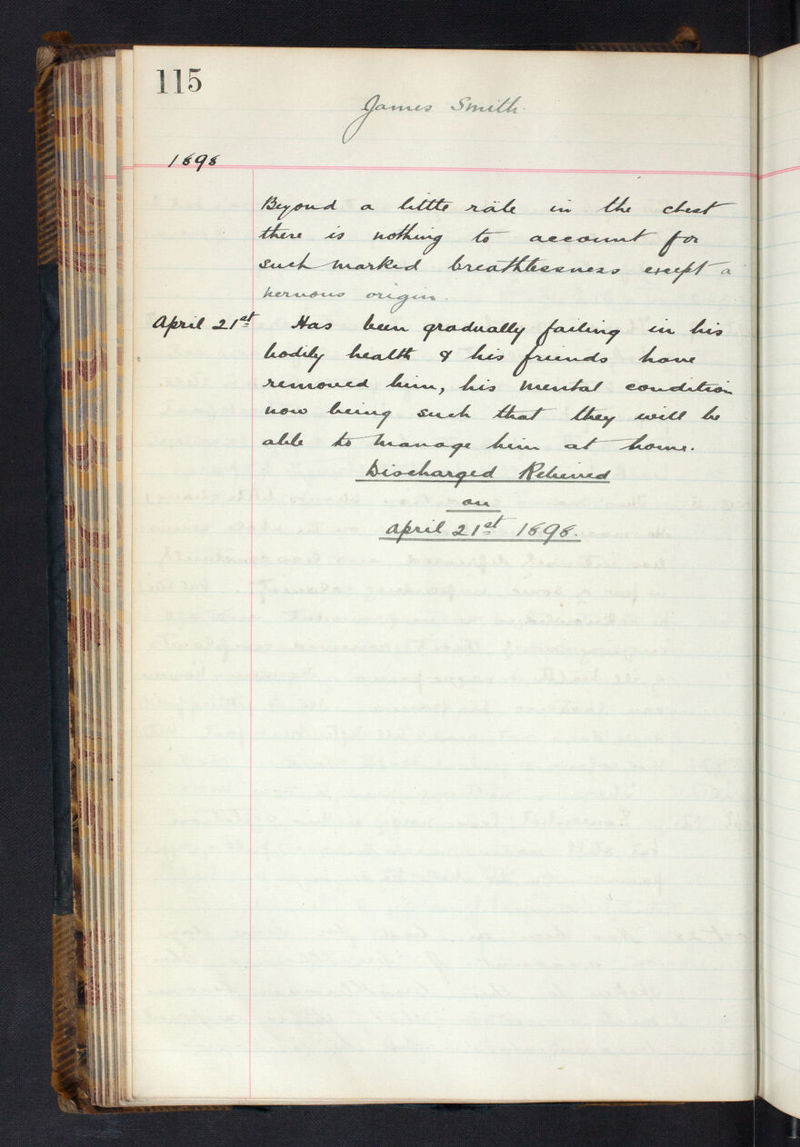 115
James Smith
1898
Beyond a little râle in the chest
there is nothing to account for
such marked breathlessness except a
nervous origin.
April 21st Has been gradually failing in his
bodily health & his friends have
removed him, his mental condition
now being such that they will be
able to manage him at home.
Discharged Relieved
on
April 21st 1898.